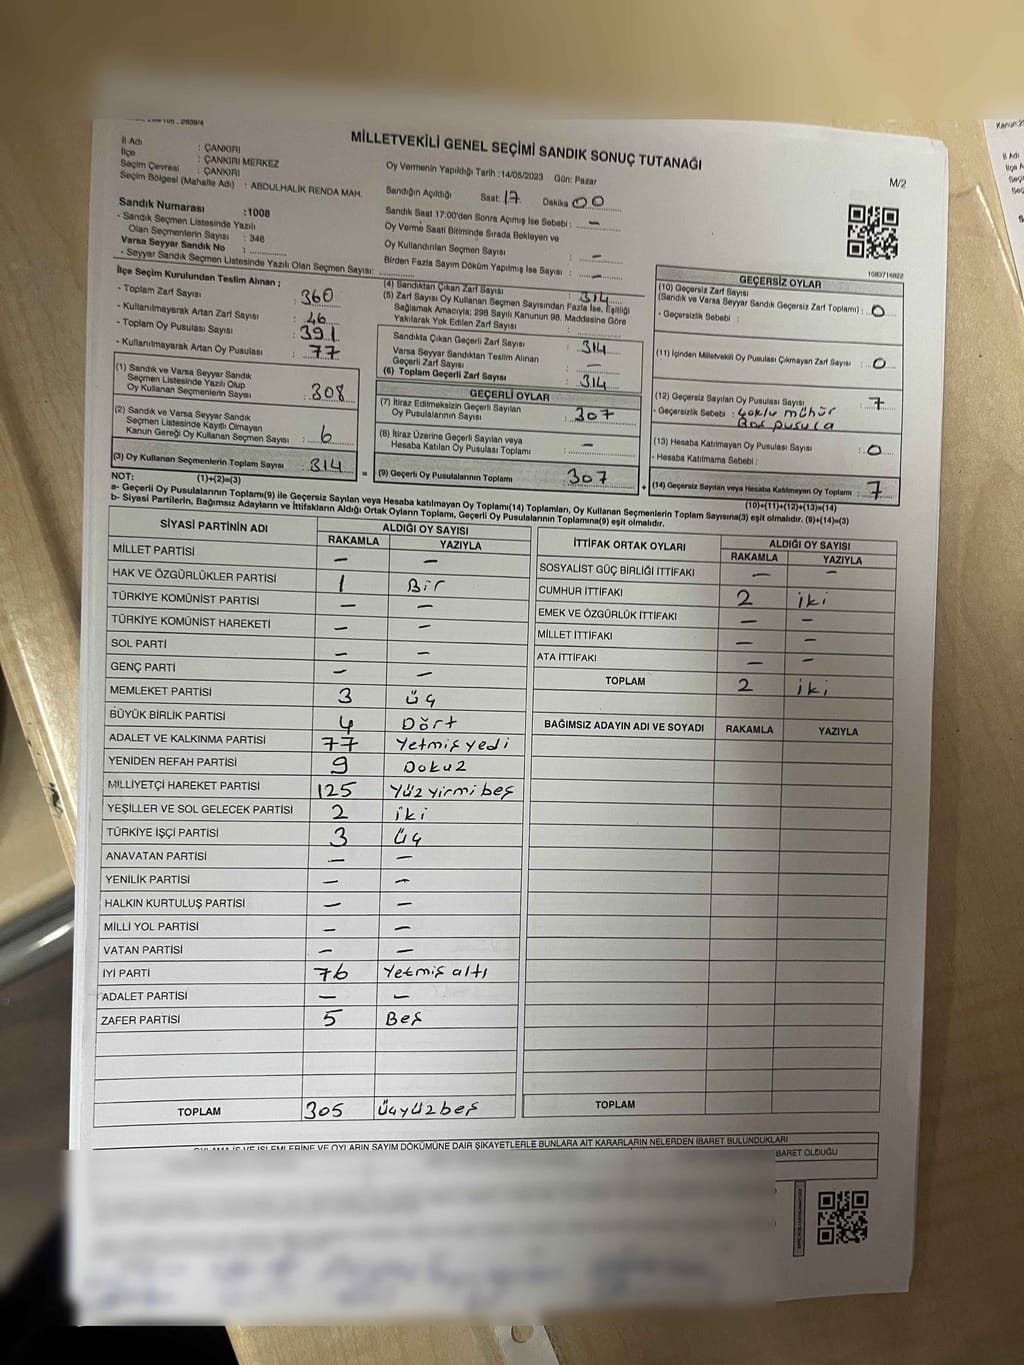 MİLLETVEKİLİ GENEL SEÇİMİ SANDIK SONUÇ TUTANAĞI
M/2
İl Adı : ÇANKIRI
İlçe : ÇANKIRI MERKEZ
Seçim Çevresi : ÇANKIRI
Seçim Bölgesi (Mahalle Adı) : ABDULHALİK RENDA MAH.
Sandık Numarası : 1008
- Sandık Seçmen Listesinde Yazılı
Olan Seçmenlerin Sayısı : 346
Varsa Seyyar Sandık No :
- Seyyar Sandık Seçmen Listesinde Yazılı Olan Seçmen Sayısı:
Oy Vermenin Yapıldığı Tarih : 14/05/2023 Gün: Pazar
Sandığın Açıldığı Saat: 17 Dakika 00
Sandık Saat 17:00'den Sonra Açılmış İse Sebebi : –
Oy Verme Saati Bitiminde Sırada Bekleyen ve
Oy Kullandırılan Seçmen Sayısı : –
Birden Fazla Sayım Döküm Yapılmış İse Sayısı : –
1083716822
İlçe Seçim Kurulundan Teslim Alınan ;
- Toplam Zarf Sayısı : 360
- Kullanılmayarak Artan Zarf Sayısı : 46
- Toplam Oy Pusulası Sayısı : 391
- Kullanılmayarak Artan Oy Pusulası : 77
(1) Sandık ve Varsa Seyyar Sandık
Seçmen Listesinde Yazılı Olup
Oy Kullanan Seçmenlerin Sayısı : 308
(2) Sandık ve Varsa Seyyar Sandık
Seçmen Listesinde Kayıtlı Olmayan
Kanun Gereği Oy Kullanan Seçmen Sayısı : 6
(3) Oy Kullanan Seçmenlerin Toplam Sayısı : 314
(1)+(2)=(3)
(4) Sandıktan Çıkan Zarf Sayısı : 314
(5) Zarf Sayısı Oy Kullanan Seçmen Sayısından Fazla İse, Eşitliği
Sağlamak Amacıyla; 298 Sayılı Kanunun 98. Maddesine Göre
Yakılarak Yok Edilen Zarf Sayısı :
Sandıkta Çıkan Geçerli Zarf Sayısı : 314
Varsa Seyyar Sandıktan Teslim Alınan
Geçerli Zarf Sayısı : –
(6) Toplam Geçerli Zarf Sayısı : 314
GEÇERLİ OYLAR
(7) İtiraz Edilmeksizin Geçerli Sayılan
Oy Pusulalarının Sayısı : 307
(8) İtiraz Üzerine Geçerli Sayılan veya
Hesaba Katılan Oy Pusulası Toplamı : –
= (9) Geçerli Oy Pusulalarının Toplamı : 307
GEÇERSİZ OYLAR
(10) Geçersiz Zarf Sayısı
(Sandık ve Varsa Seyyar Sandık Geçersiz Zarf Toplamı) : 0
- Geçersizlik Sebebi :
(11) İçinden Milletvekili Oy Pusulası Çıkmayan Zarf Sayısı : 0
(12) Geçersiz Sayılan Oy Pusulası Sayısı : 7
- Geçersizlik Sebebi : Çoklu mühür
Boş pusula
(13) Hesaba Katılmayan Oy Pusulası Sayısı : 0
- Hesaba Katılmama Sebebi :
+ (14) Geçersiz Sayılan veya Hesaba Katılmayan Oy Toplamı : 7
(10)+(11)+(12)+(13)=(14)
NOT:
a- Geçerli Oy Pusulalarının Toplamı(9) ile Geçersiz Sayılan veya Hesaba katılmayan Oy Toplamı(14) Toplamları, Oy Kullanan Seçmenlerin Toplam Sayısına(3) eşit olmalıdır. (9)+(14)=(3)
b- Siyasi Partilerin, Bağımsız Adayların ve İttifakların Aldığı Ortak Oyların Toplamı, Geçerli Oy Pusulalarının Toplamına(9) eşit olmalıdır.
SİYASİ PARTİNİN ADI ALDIĞI OY SAYISI
RAKAMLA YAZIYLA
MİLLET PARTİSİ – –
HAK VE ÖZGÜRLÜKLER PARTİSİ 1 Bir
TÜRKİYE KOMÜNİST PARTİSİ – –
TÜRKİYE KOMÜNİST HAREKETİ – –
SOL PARTİ – –
GENÇ PARTİ – –
MEMLEKET PARTİSİ 3 üç
BÜYÜK BİRLİK PARTİSİ 4 Dört
ADALET VE KALKINMA PARTİSİ 77 Yetmiş yedi
YENİDEN REFAH PARTİSİ 9 Dokuz
MİLLİYETÇİ HAREKET PARTİSİ 125 Yüz yirmi beş
YEŞİLLER VE SOL GELECEK PARTİSİ 2 iki
TÜRKİYE İŞÇİ PARTİSİ 3 üç
ANAVATAN PARTİSİ – –
YENİLİK PARTİSİ – –
HALKIN KURTULUŞ PARTİSİ – –
MİLLİ YOL PARTİSİ – –
VATAN PARTİSİ – –
İYİ PARTİ 76 Yetmiş altı
ADALET PARTİSİ – –
ZAFER PARTİSİ 5 Beş
TOPLAM 305 üçyüzbeş
İTTİFAK ORTAK OYLARI ALDIĞI OY SAYISI
RAKAMLA YAZIYLA
SOSYALİST GÜÇ BİRLİĞİ İTTİFAKI – –
CUMHUR İTTİFAKI 2 iki
EMEK VE ÖZGÜRLÜK İTTİFAKI – –
MİLLET İTTİFAKI – –
ATA İTTİFAKI – –
TOPLAM 2 iki
BAĞIMSIZ ADAYIN ADI VE SOYADI RAKAMLA YAZIYLA
TOPLAM
İŞLEMLERİNE VE OYLARIN SAYIM DÖKÜMÜNE DAİR ŞİKAYETLERLE BUNLARA AİT KARARLARIN NELERDEN İBARET BULUNDUKLARI
BARET OLDUĞU